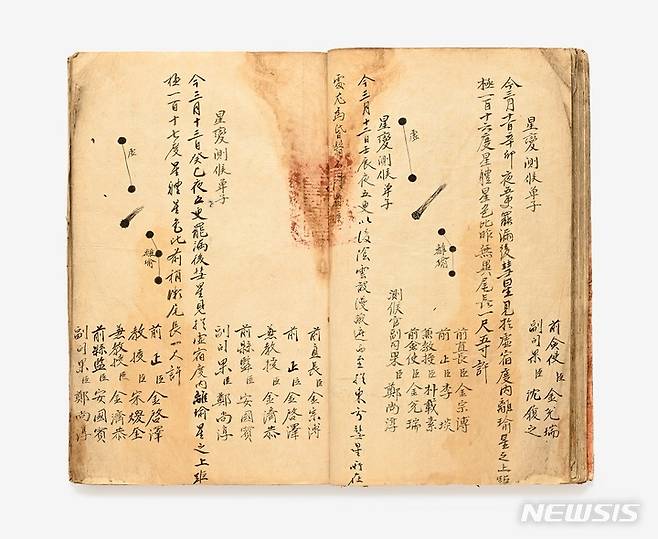 星變測候單子
今三月十一日辛卯夜五更罷漏後彗星見於虛宿度內離瑜星之上距
極一百十六度星體星色比昨無異尾長一尺五寸許
前僉使臣金兌瑞
副司果臣沈復之
虛
離瑜
星變測候單子
今三月十二日壬辰夜五更以後陰雲散漫蔽遮而至於東方彗星所在
測候官副司果臣鄭尚淳
前僉使臣金兌瑞
兼教授臣朴載素
前正臣李埮
前直長臣金宗溥
星變測候單子
今三月十三日癸巳夜五更罷漏後彗星見於虛宿度內離瑜星之上距
極一百十七度星體星色比前稍微尾長一尺許
虛
離瑜
前直長臣金宗溥
前正臣金啓澤
兼教授臣金濟恭
前縣監臣安國賓
副司果臣鄭尚淳
前正臣金啓澤
教授臣宋燰金
兼教授臣金濟恭
前縣監臣安國賓
副司果臣鄭尚淳
NEWSIS